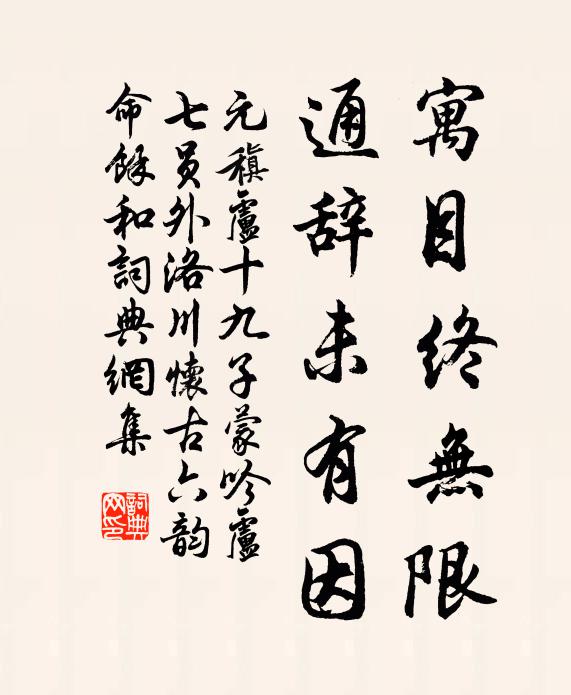 寓目終無限
通辞未有因
元稹盧十九子蒙吟盧
七員外洛川懷古六韵
命餘和詞典網集
詞典网印